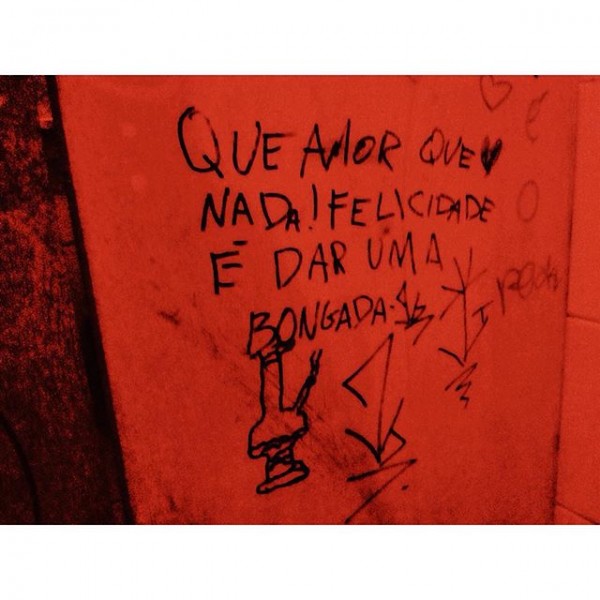 QUE AMOR QUE
NADA! FELICIDADE
É DAR UMA
BONGADA.